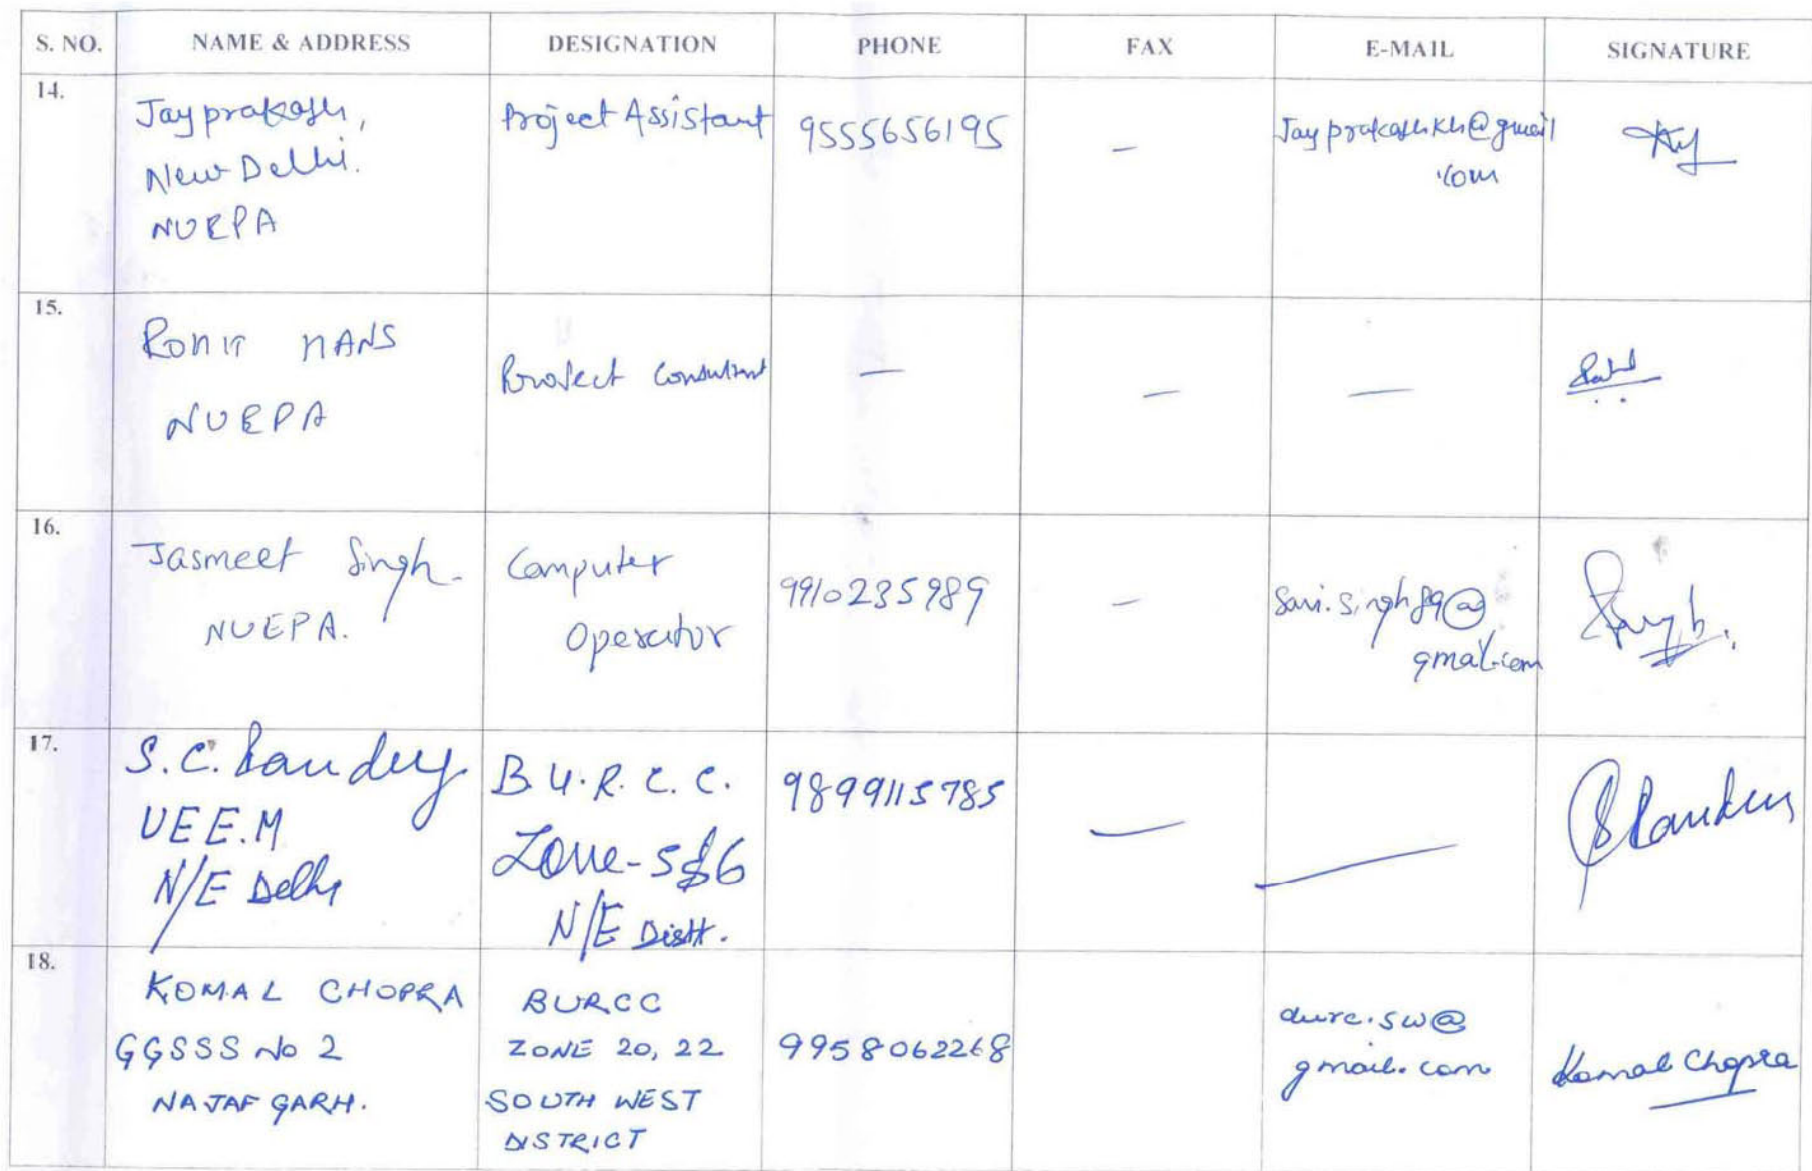 S. NO. NAME & ADDRESS DESIGNATION PHONE FAX E-MAIL SIGNATURE
14.
Jayprakash,
New Delhi.
NUEPA
Project Assistant
9555656195
—
Jayprakashkh@gmail
.com
15.
ROHIT HANS
NUEPA
Project Consultant
—
—
—
16.
Jasmeet Singh.
NUEPA.
Computer
Operator
9910235989
—
Savi.Singh89@
gmail.com
Singh.
17.
S.C. Pandey
UEE.M
N/E Delhi
B.U.R.C.C.
Zone-5&6
N/E Distt.
9899115785
—
—
18.
KOMAL CHOPRA
GGSSS No 2
NAJAFGARH.
BURCC
ZONE 20, 22
SOUTH WEST
DISTRICT
9958062268
durc.sw@
gmail.com
Komal Chopra